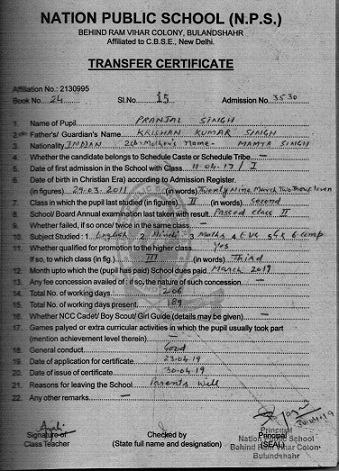 NATION PUBLIC SCHOOL (N.P.S.)
BEHIND RAM VIHAR COLONY, BULANDSHAHR
Affiliated to C.B.S.E., New Delhi.
TRANSFER CERTIFICATE
Affiliation No.: 2130995
Book No. 24 Sl.No. 15 Admission No. 3530
1. Name of Pupil PRANJAL SINGH
2. Father's/ Guardian's Name KRISHAN KUMAR SINGH
3. Nationality INDIAN 2(b) Mother's Name- MAMTA SINGH
4. Whether the candidate belongs to Schedule Caste or Schedule Tribe —
5. Date of first admission in the School with Class 11-04-17 / I
6. Date of birth in Christian Era) according to Admission Register.
(in figures) 29.03.2011 (in words) Twenty Nine March Two Thous Eleven
7. Class in which the pupil last studied (in figures) II (in words) Second
8. School/ Board Annual examination last taken with result. Passed class II
9. Whether failed, if so once/ twice in the same class —
10. Subject Studied : 1 English 2 Hindi 3 Maths 4 EVS 5 G.K 6 Comp
11. Whether qualified for promotion to the higher class Yes
If so, to which class (in fig.) III (in words) Third
12. Month upto which the (pupil has paid) School dues paid March 2019
13. Any fee concession availed of : if so, the nature of such concession —
14. Total No. of working days 206
15. Total No. of working days present. 189
16. Whether NCC Cadet/ Boy Scout/ Girl Guide (details may be given) —
17. Games palyed or extra curricular activities in which the pupil usually took part
(mention achievement level therein) —
18. General conduct Good
19. Date of application for certificate 23-04-19
20. Date of issue of certificate 30-04-19
21. Reasons for leaving the School Parents Will
22. Any other remarks —
Signature of
Class Teacher
Checked by
(State full name and designation)
Principal
(SEAL)
Principal
Nation Public School
Behind Ram Vihar Colony
Bulandshahr